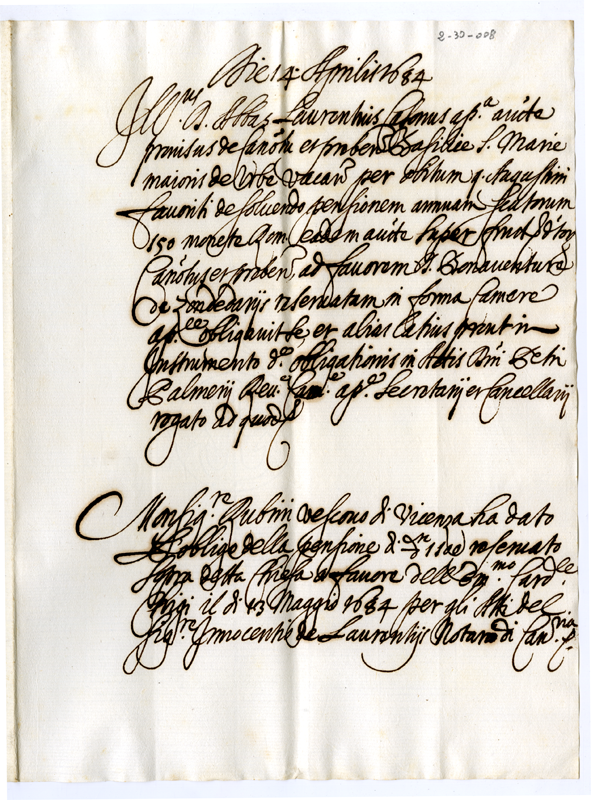 2-30-008
Die 14 Aprilis 1684
Ill.us D. Abbas Laurentius ap.a auc.te
provisus de Can.tu et preben. Basilice S. Marie
maioris de Urbe vacan. per obitum q. Augustini
favoriti de solvendo pensionem annuam scutorum
150 monete Rom. eadem auc.te super fruct.
Can.tus et preben. ad favorem D. Bonaventure
de Zondedarijs reservatam in forma Camere
ap.ce obligavit se, et alias latius prout in
Instrumento d.e obligationis in Actis D. Petri
Palmerij Rev.e Cam.e ap.e Secretarij et Cancellarij
rogato ad quod
Monsig.re Rubini vescovo di Vicenza ha dato
l'oblige della pensione di reservato
sopra detta Chiesa a favore dell' Em.mo Card.le
Chigi il di 13 Maggio 1684 per gli Atti del
Sig.re Innocentio de Laurentijs Notaro di Can.ria